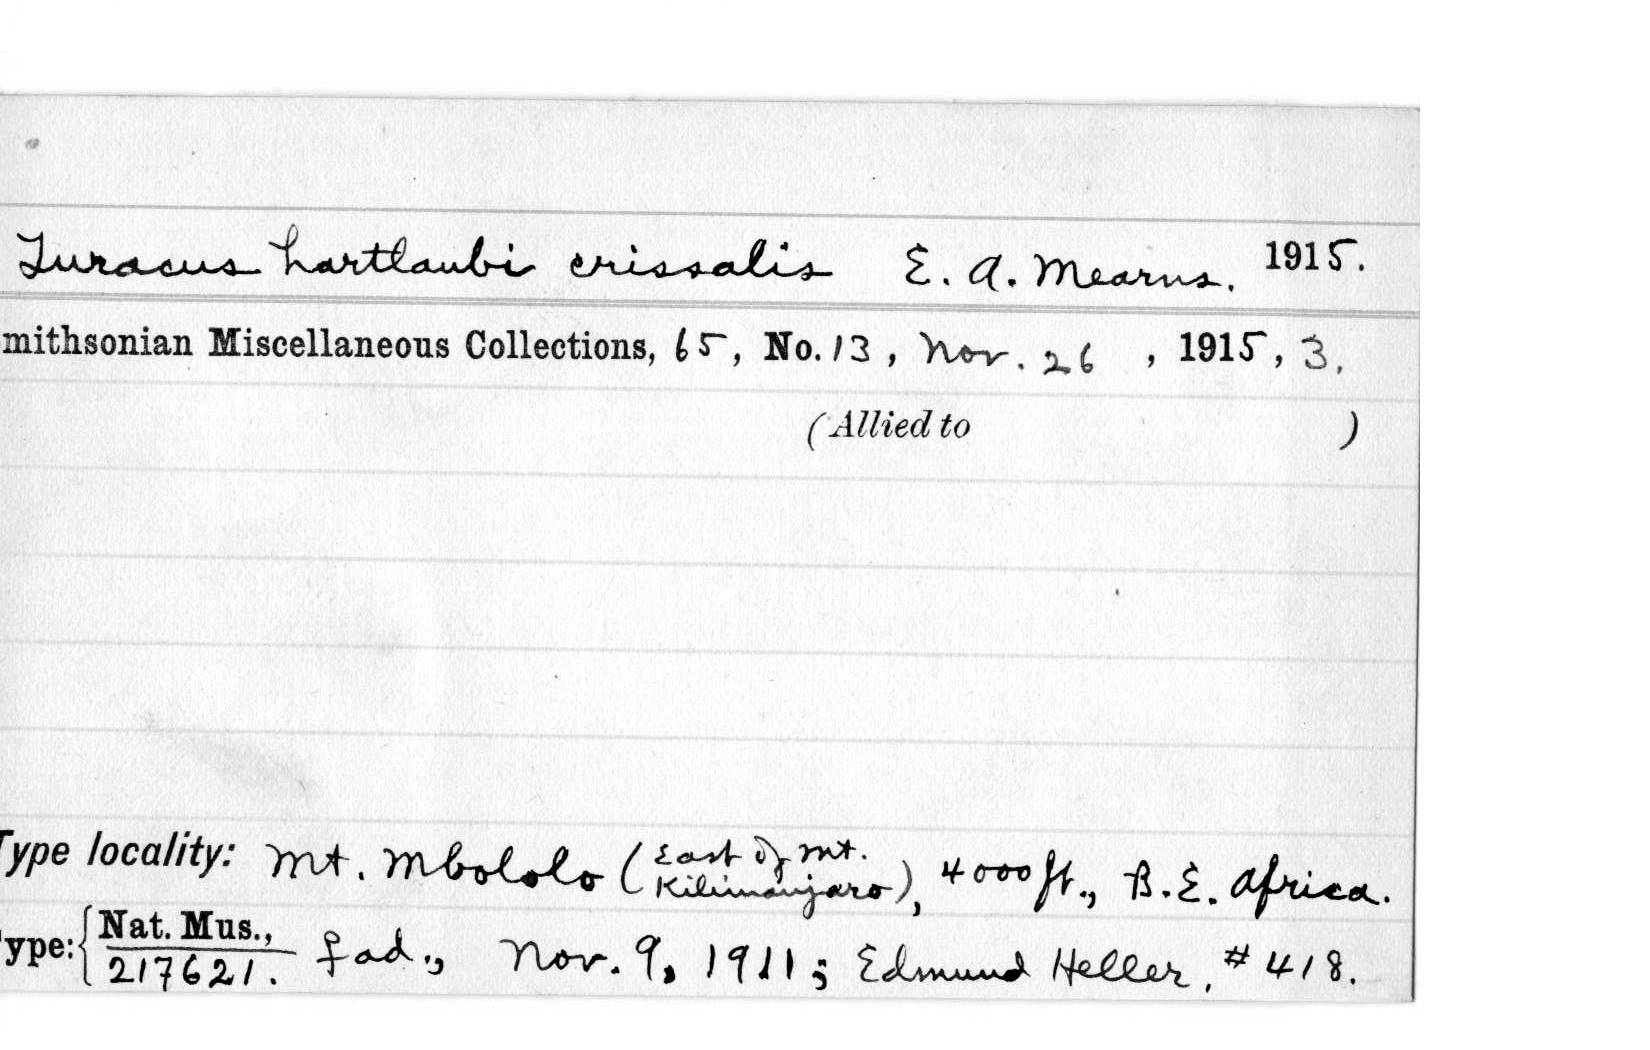 Turacus hartlaubi crissalis E. A. Mearns. 1915.
mithsonian Miscellaneous Collections, 65, No. 13, Nov. 26, 1915, 3.
(Allied to )
Type locality: Mt. Mbololo (East of Mt. Kilimanjaro), 4000 ft., B. E. Africa.
ype: { Nat. Mus., 217621. ♀ ad., Nov. 9, 1911; Edmund Heller, #418.